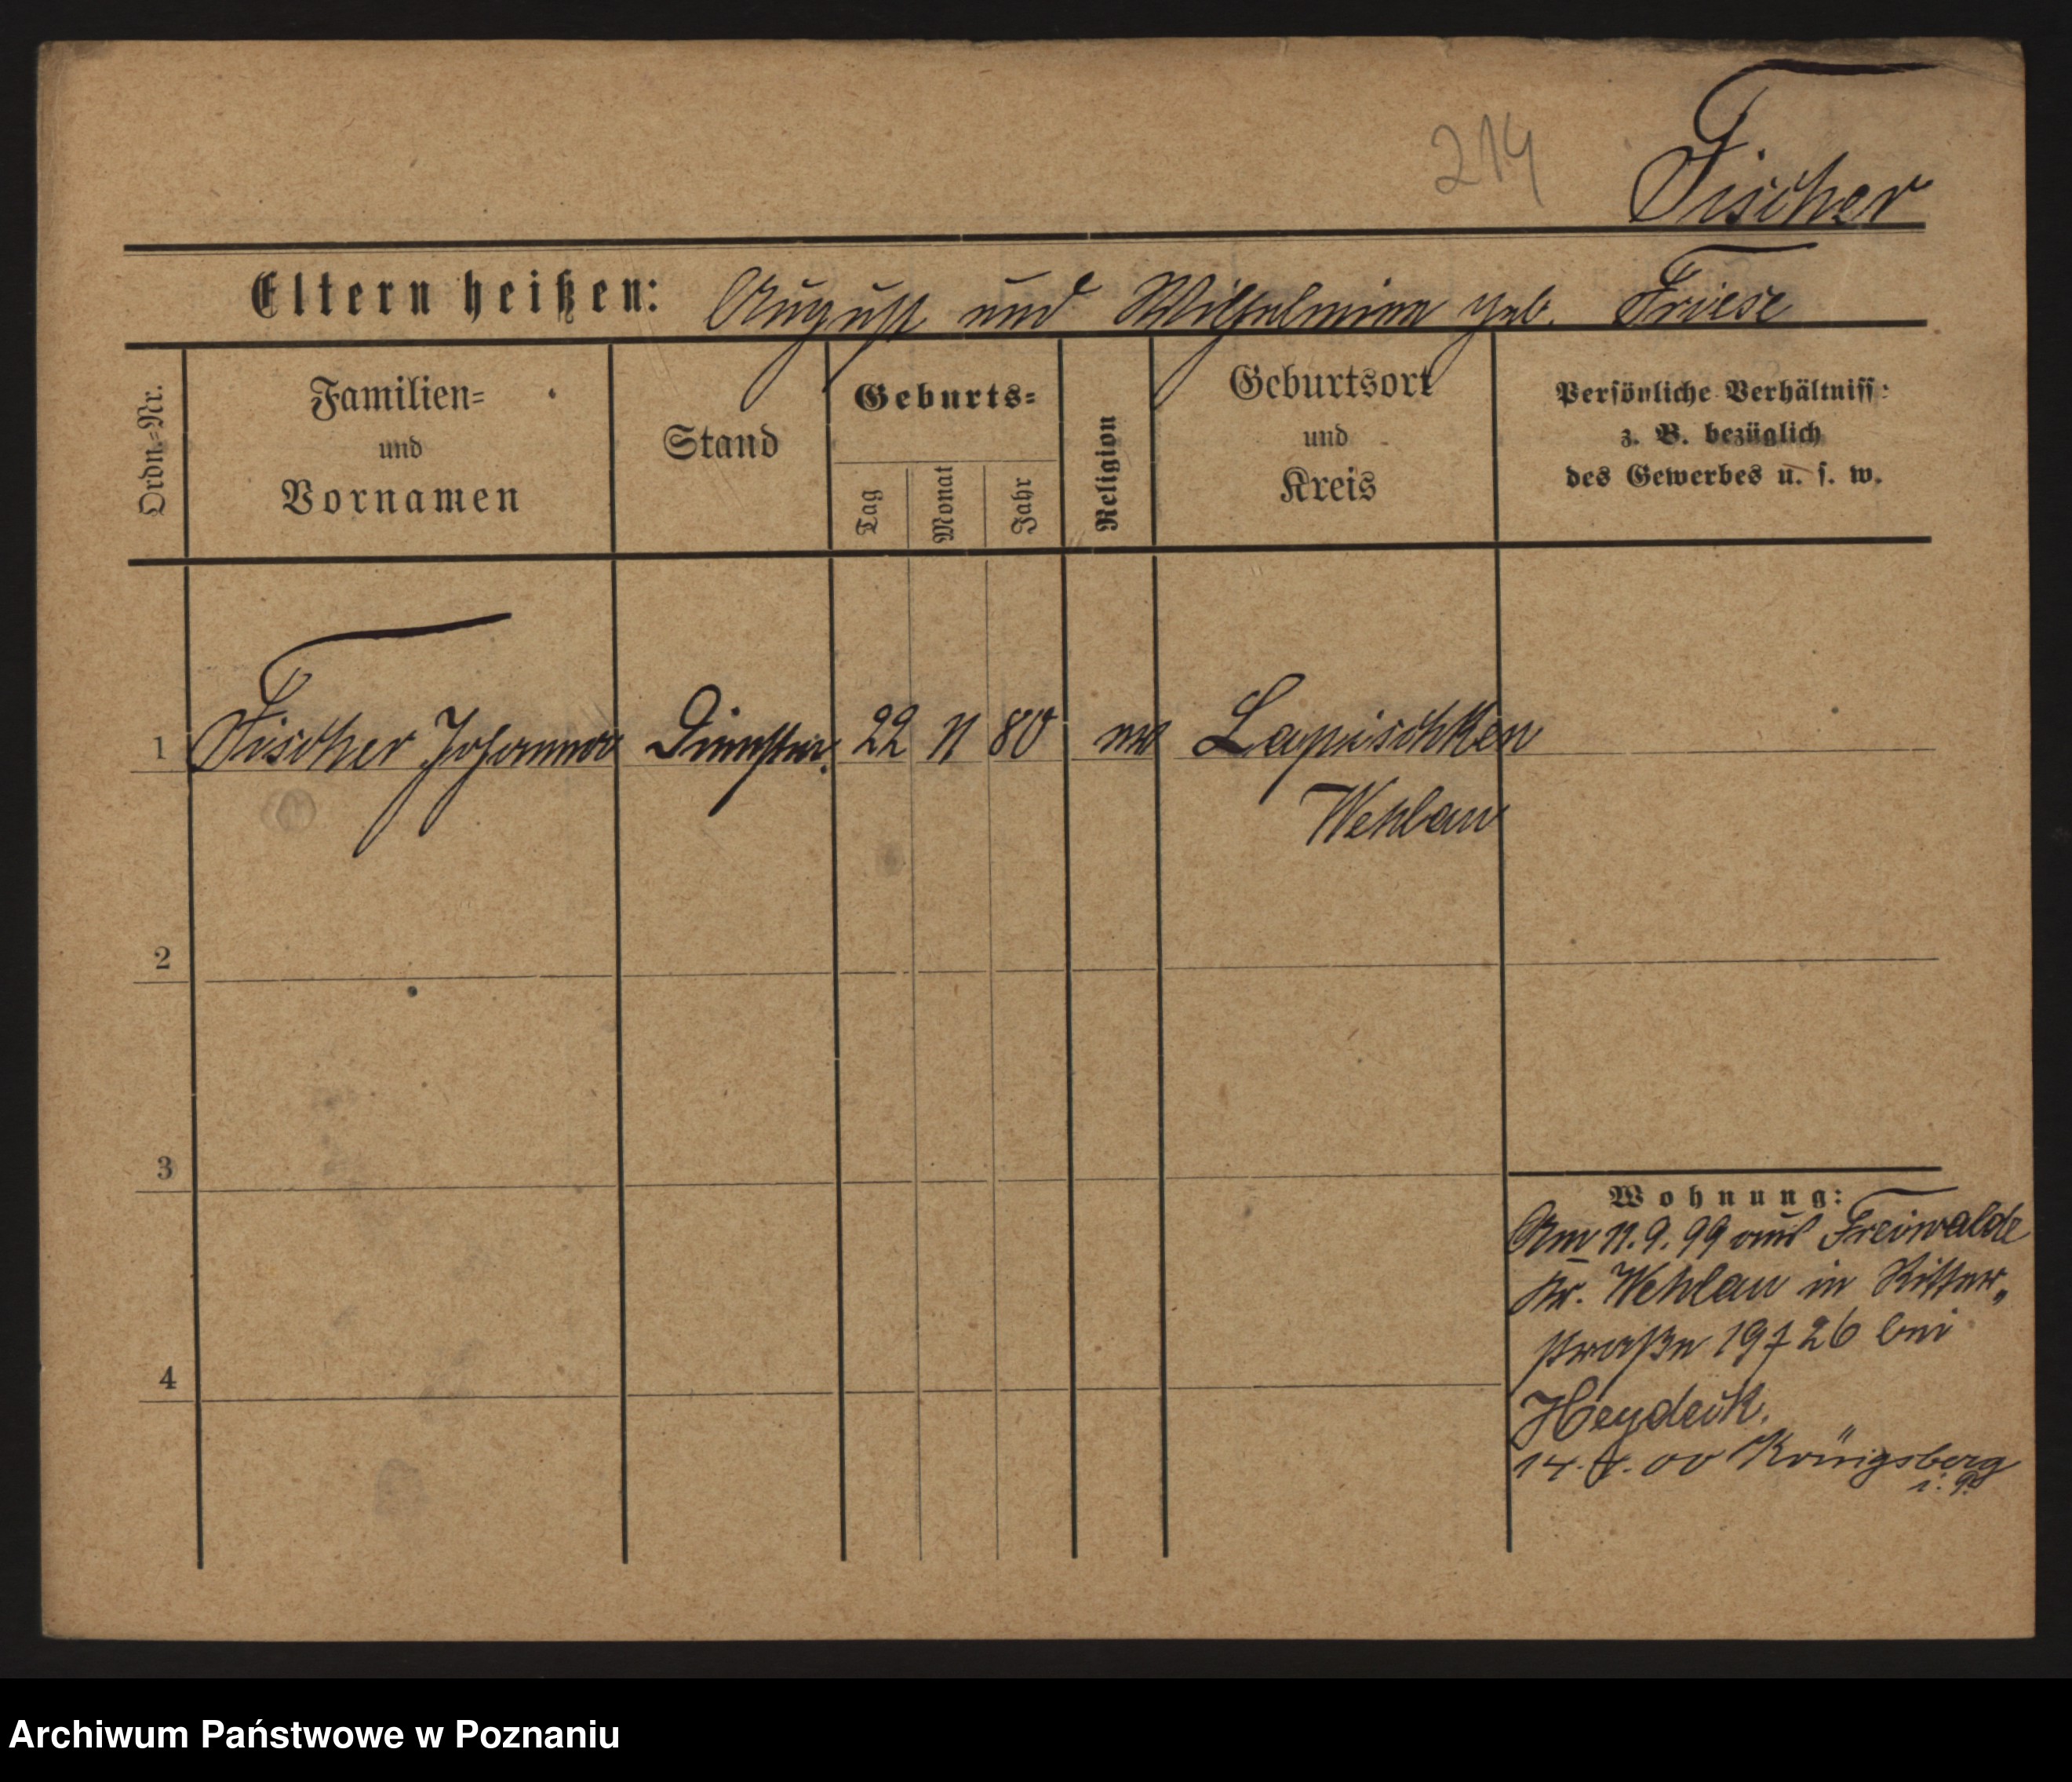 214
Fischer
Eltern heißen: August und Wilhelmine geb. Friese
Ordn.=Nr.
Familien=
und
Vornamen
Stand
Geburts=
Tag
Monat
Jahr
Religion
Geburtsort
und
Kreis
Persönliche Verhältniss
z. B. bezüglich
des Gewerbes u. s. w.
1 Fischer Johanna 22 11 80 Lapischken
Wehlau
2
3
4
Wohnung:
Am 11.9.99 aus Freiwalde
Kr. Wehlau in Ritter„
straße 19 26 bei
Heydeck.
00 Königsberg
i. P.
Archiwum Państwowe w Poznaniu